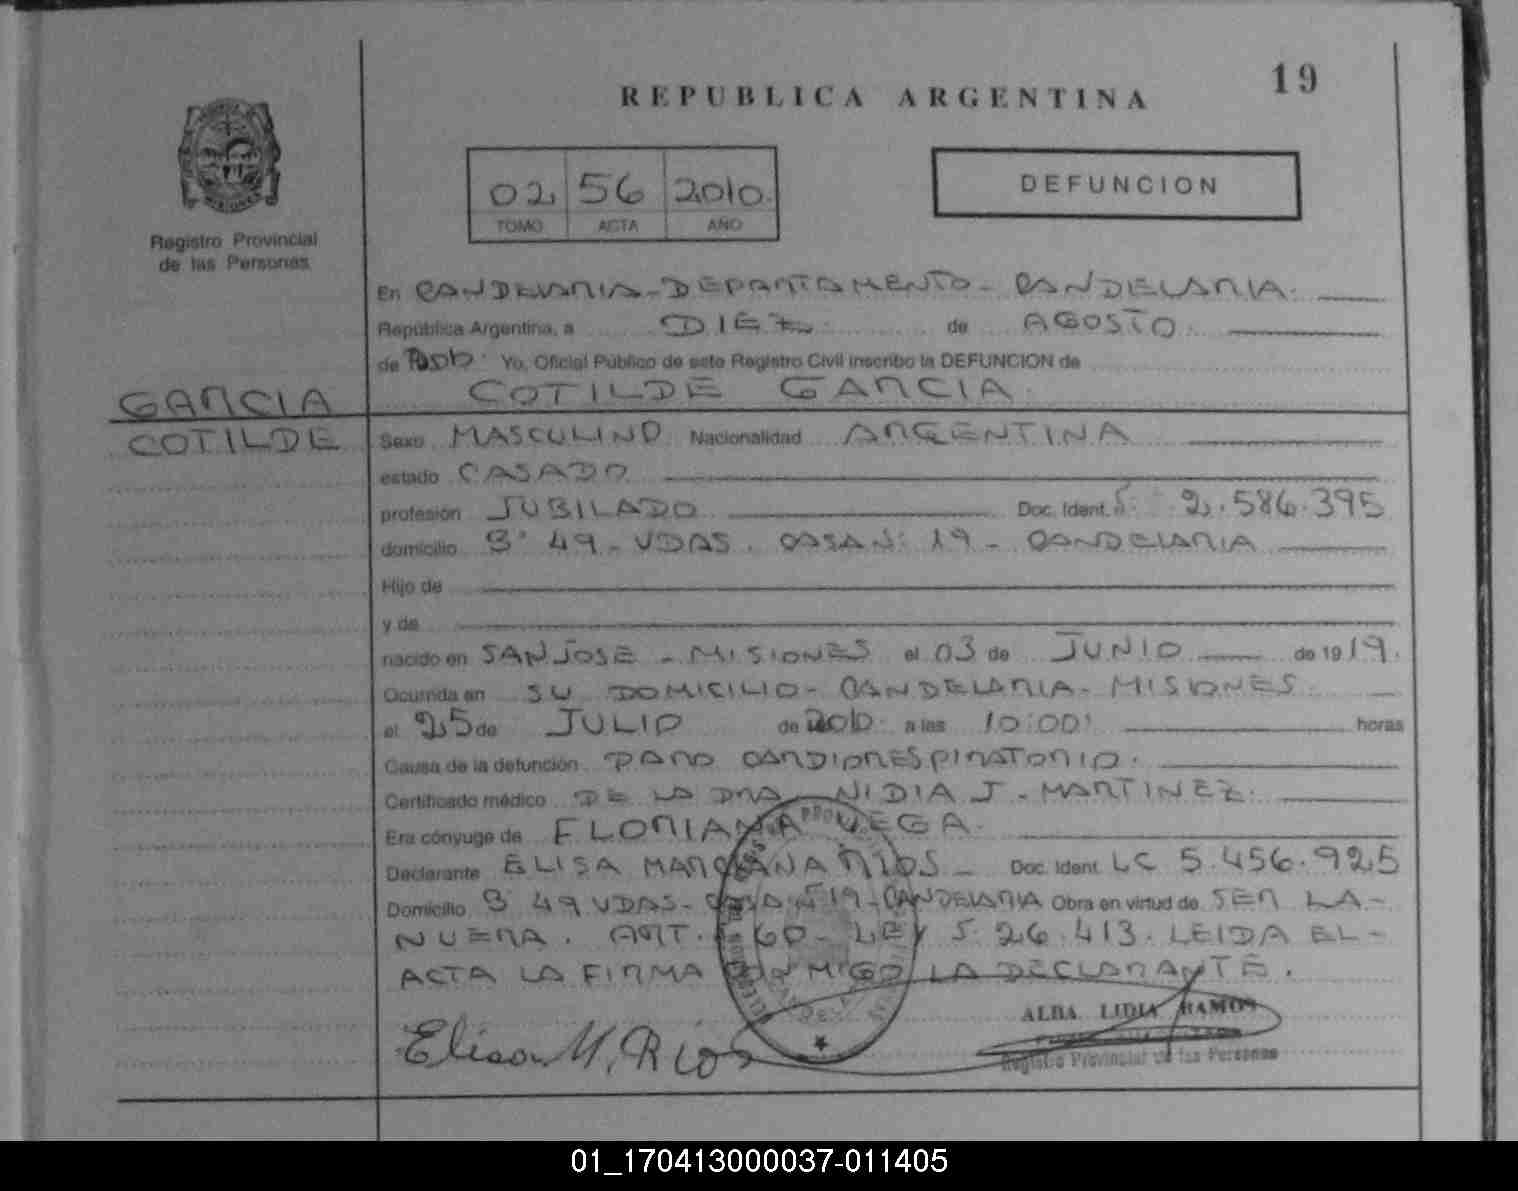 19
REPUBLICA ARGENTINA
02 56 2010
TOMO ACTA AÑO
DEFUNCION
Registro Provincial
de las Personas
En CANDELARIA - DEPARTAMENTO - CANDELARIA.
República Argentina, a DIEZ de AGOSTO
de 2010. Yo, Oficial Público de este Registro Civil inscribo la DEFUNCION de
COTILDE GARCIA.
GARCIA
COTILDE
Sexo MASCULINO Nacionalidad ARGENTINA
estado CASADO
profesión JUBILADO Doc. Ident. 2.586.395
domicilio B° 49 - VDAS. CASA N° 19 - CANDELARIA
Hijo de
y de
nacido en SAN JOSE - MISIONES el 03 de JUNIO de 1919.
Ocurrida en SU DOMICILIO - CANDELARIA - MISIONES.
el 25 de JULIO de 2010. a las 10:00 horas
Causa de la defunción PARO CARDIORESPIRATORIO.
Certificado médico DE LA DRA. NIDIA J. MARTINEZ.
Era cónyuge de FLORIANA VEGA.
Declarante ELISA MARCIANA RIOS - Doc. Ident. LC 5.456.925
Domicilio B° 49 VDAS - CASA N° 19 - CANDELARIA Obra en virtud de SER LA -
NUERA. ART. 60 - LEY 26.413. LEIDA EL -
ACTA LA FIRMA CONMIGO LA DECLARANTE.
Elisa M. Rios
ALBA LIDIA RAMOS
Registro Provincial de las Personas
01_170413000037-011405